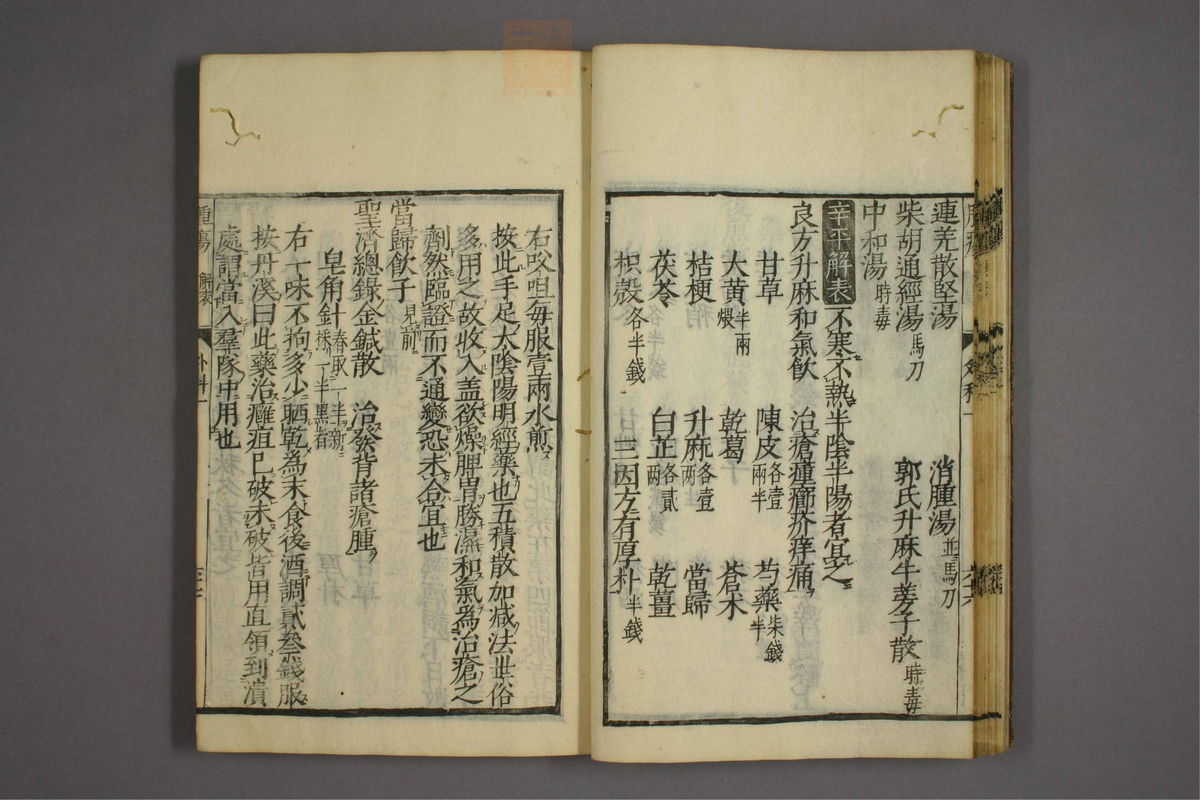 連羌散堅湯 消腫湯並馬刀
柴胡通經湯馬刀 郭氏升麻牛蒡子散時毒
中和湯時毒
辛平解表 不寒不熱半陰半陽者宜之
良方升麻和氣飲 治瘡腫癤疥痒痛
甘草 陳皮各壹兩半 芍藥柒錢半
大黃半兩煨 乾葛 蒼朮
桔梗 升麻各壹兩 當歸
茯苓 白芷各貳兩 乾薑
枳殼各半錢 三因方有厚朴半錢
右㕮咀每服壹兩水煎
按此手足太陰陽明經藥也五積散加减法世俗
多用之故收入盖欲燥脾胃勝濕和氣為治瘡之
劑然臨證而不通變恐未合宜也
當歸飲子見前
聖濟總錄金鍼散 治發背諸瘡腫
皂角針春取一半新採一半黑者
右一味不拘多少晒乾為末食後酒調貳叁錢服
按丹溪曰此藥治癰疽已破未破皆用直領到潰
處謂當入羣隊中用也
腫瘍 解表 外科一